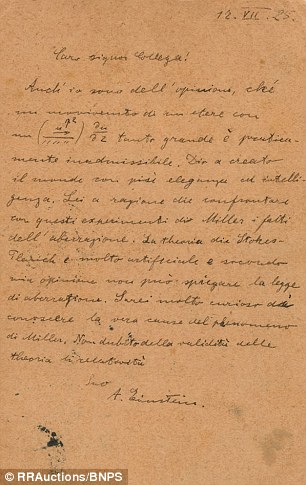 12. VII. 25.
Caro signor Collega!
Anch' io sono dell' opinione, che
un movimento di un etere con
un tanto grande è pratica-
mente inadmissibile. Dio a creato
il mondo con più eleganza ed intelli-
genza. Lei a ragione che confrontare
con questi experimenti di Miller i fatti
dell' aberrazione. La theoria di Stokes-
è molto artificiale e secondo
mia opinione non può spiegare la legge
di aberrazione. Sarei molto curioso di
conoscere la vera causa del phenomeno
di Miller. Non dubito della validità della
theoria di relatività
suo
A. Einstein.
© RRAuctions/BNPS